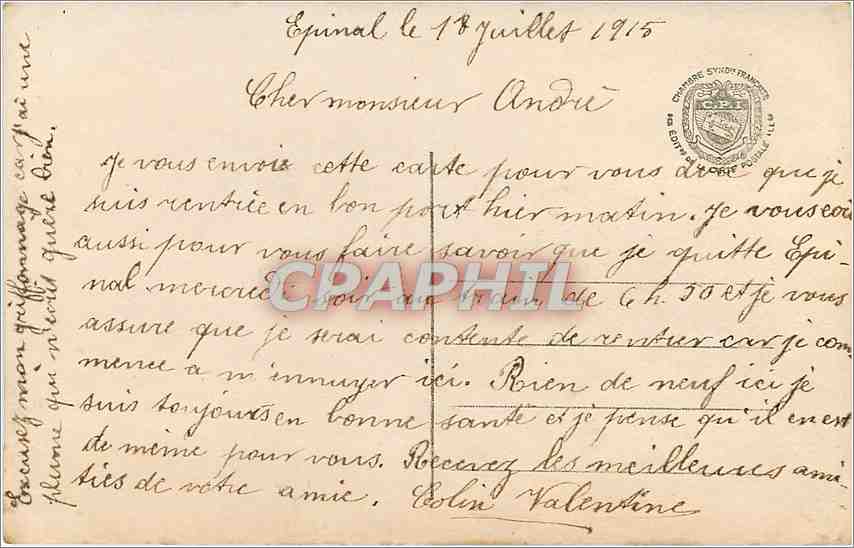 Epinal le 18 Juillet 1915
Cher monsieur André
Je vous envoie cette carte pour vous dire que je
suis rentrée en bon port hier matin. Je vous écris
aussi pour vous faire savoir que je quitte Epi-
nal mercredi soir au train de 6 h 50 et je vous
assure que je serai contente de rentrer car je com-
mence a m'ennuyer ici. Rien de neuf ici je
suis toujours en bonne santé et je pense qu'il en est
de même pour vous. Recevez les meilleures ami-
tiés de votre amie. Colin Valentine
Excusez mon griffonnage car j'ai une
plume qui n'écrit guère bien.
CHAMBRE SYND^le FRANÇAISE
DES ÉDIT^rs DE LA CARTE POSTALE ILL^ée
C.P.I
CPAPHIL